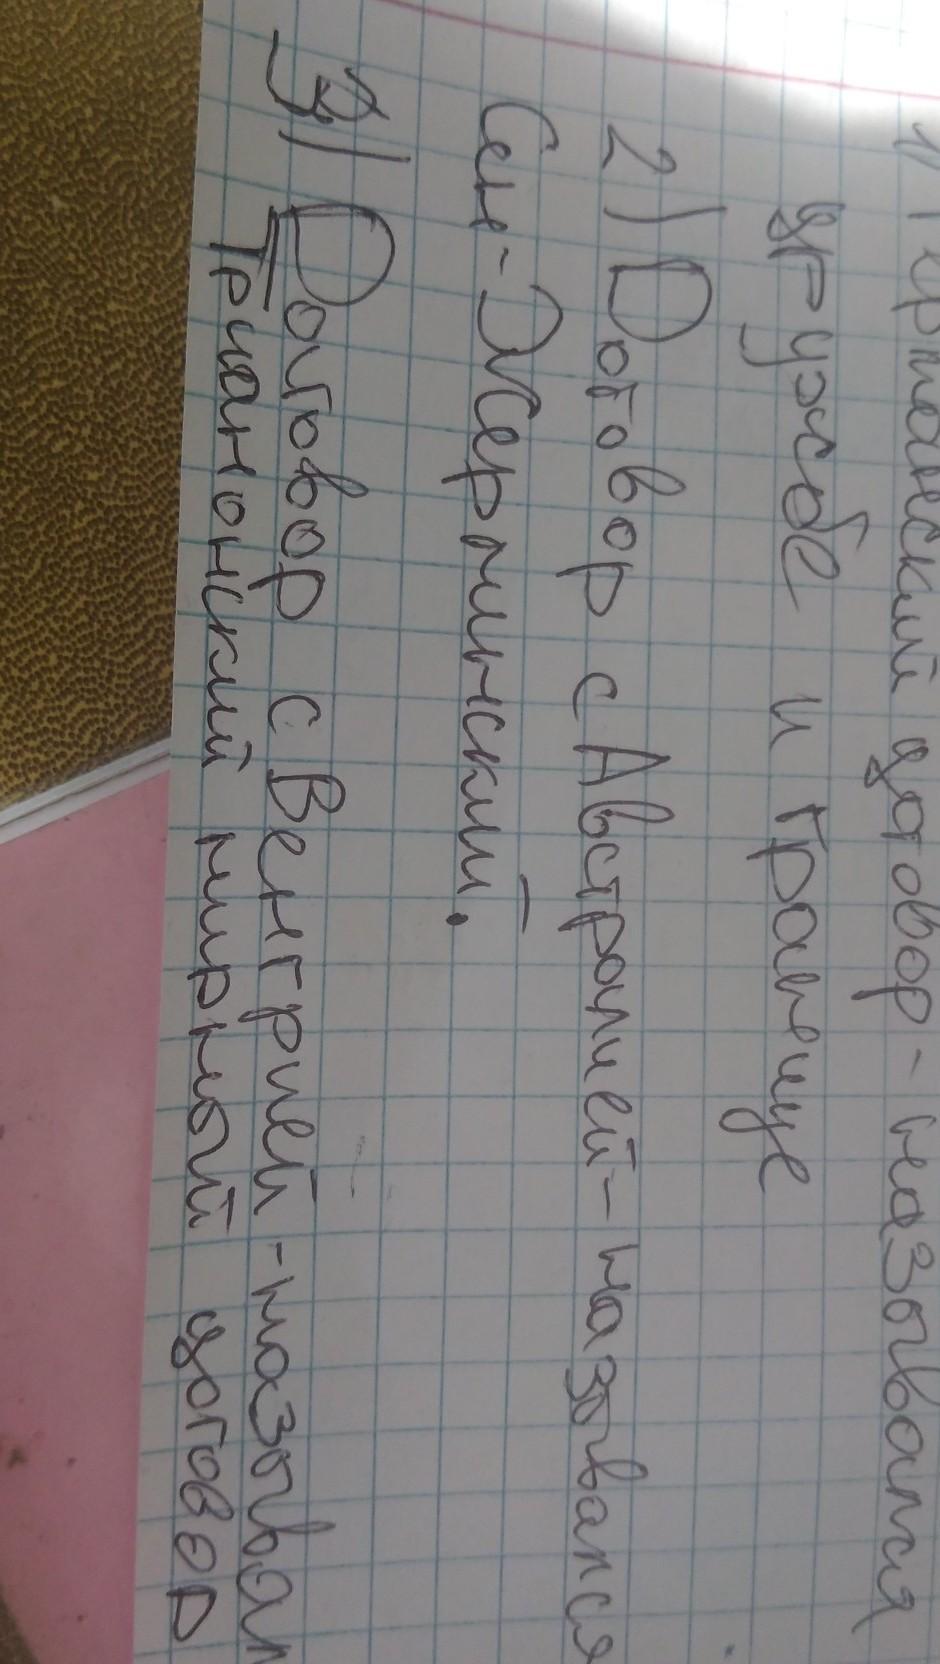 1) Германский договор - назывался
дружбе и границе
2) Договор с Австралией - назывался
Сен-Жерменский.
3) Договор с Венгрией - называл
Трианонский мирный договор